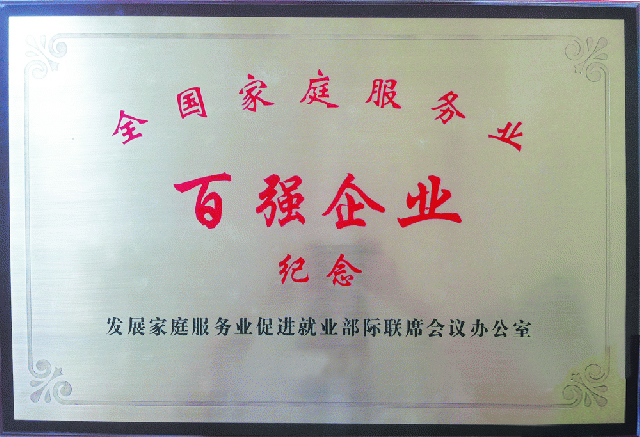 全国家庭服务业
百强企业
纪念
发展家庭服务业促进就业部际联席会议办公室